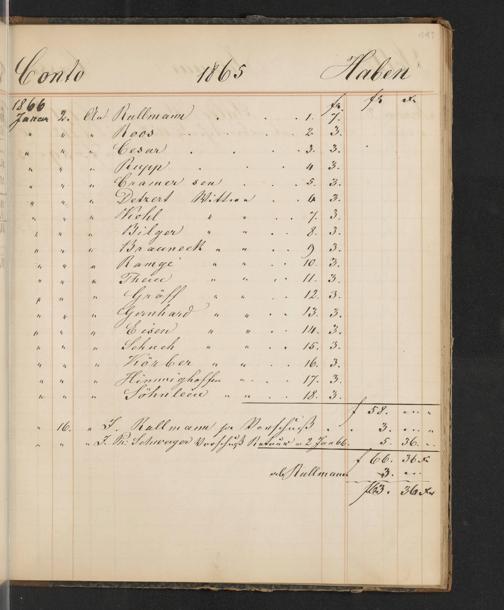 Conto 1865 Haben
1866 fr. fr. Xr.
Januar 2. An Rullmann . . . 1. 7.
" " " Roos . . . 2. 3.
" " " Cesar . . . 3. 3.
" " " Rupp . . . 4. 3.
" " " Cramer sen . . . 5. 3.
" " " Detzert Wittwe . . 6. 3.
" " " Kohl " " . . 7. 3.
" " " Bilger " " . . 8. 3.
" " " Brauneck " " . . 9. 3.
" " " Ramge " " . . 10. 3.
" " " " " . . 11. 3.
" " " Gräff " " . . 12. 3.
" " " Gernhard " " . . 13. 3.
" " " Eisen " " . . 14. 3.
" " " Schuch " " . . 15. 3.
" " " Körber " " . . 16. 3.
" " " Hinnighoffen " " . . 17. 3.
" " " Söhnlein " " . . 18. 3.
f 58. " "
" 16. " Rullmann pr Vorschuß . . 3. " "
" " " Schwenger Vorschuß Retour v 2 Jan 66. 5. 36. "
f 66. 36 Xr
Rullmann 3. " "
f 63. 36 Xr